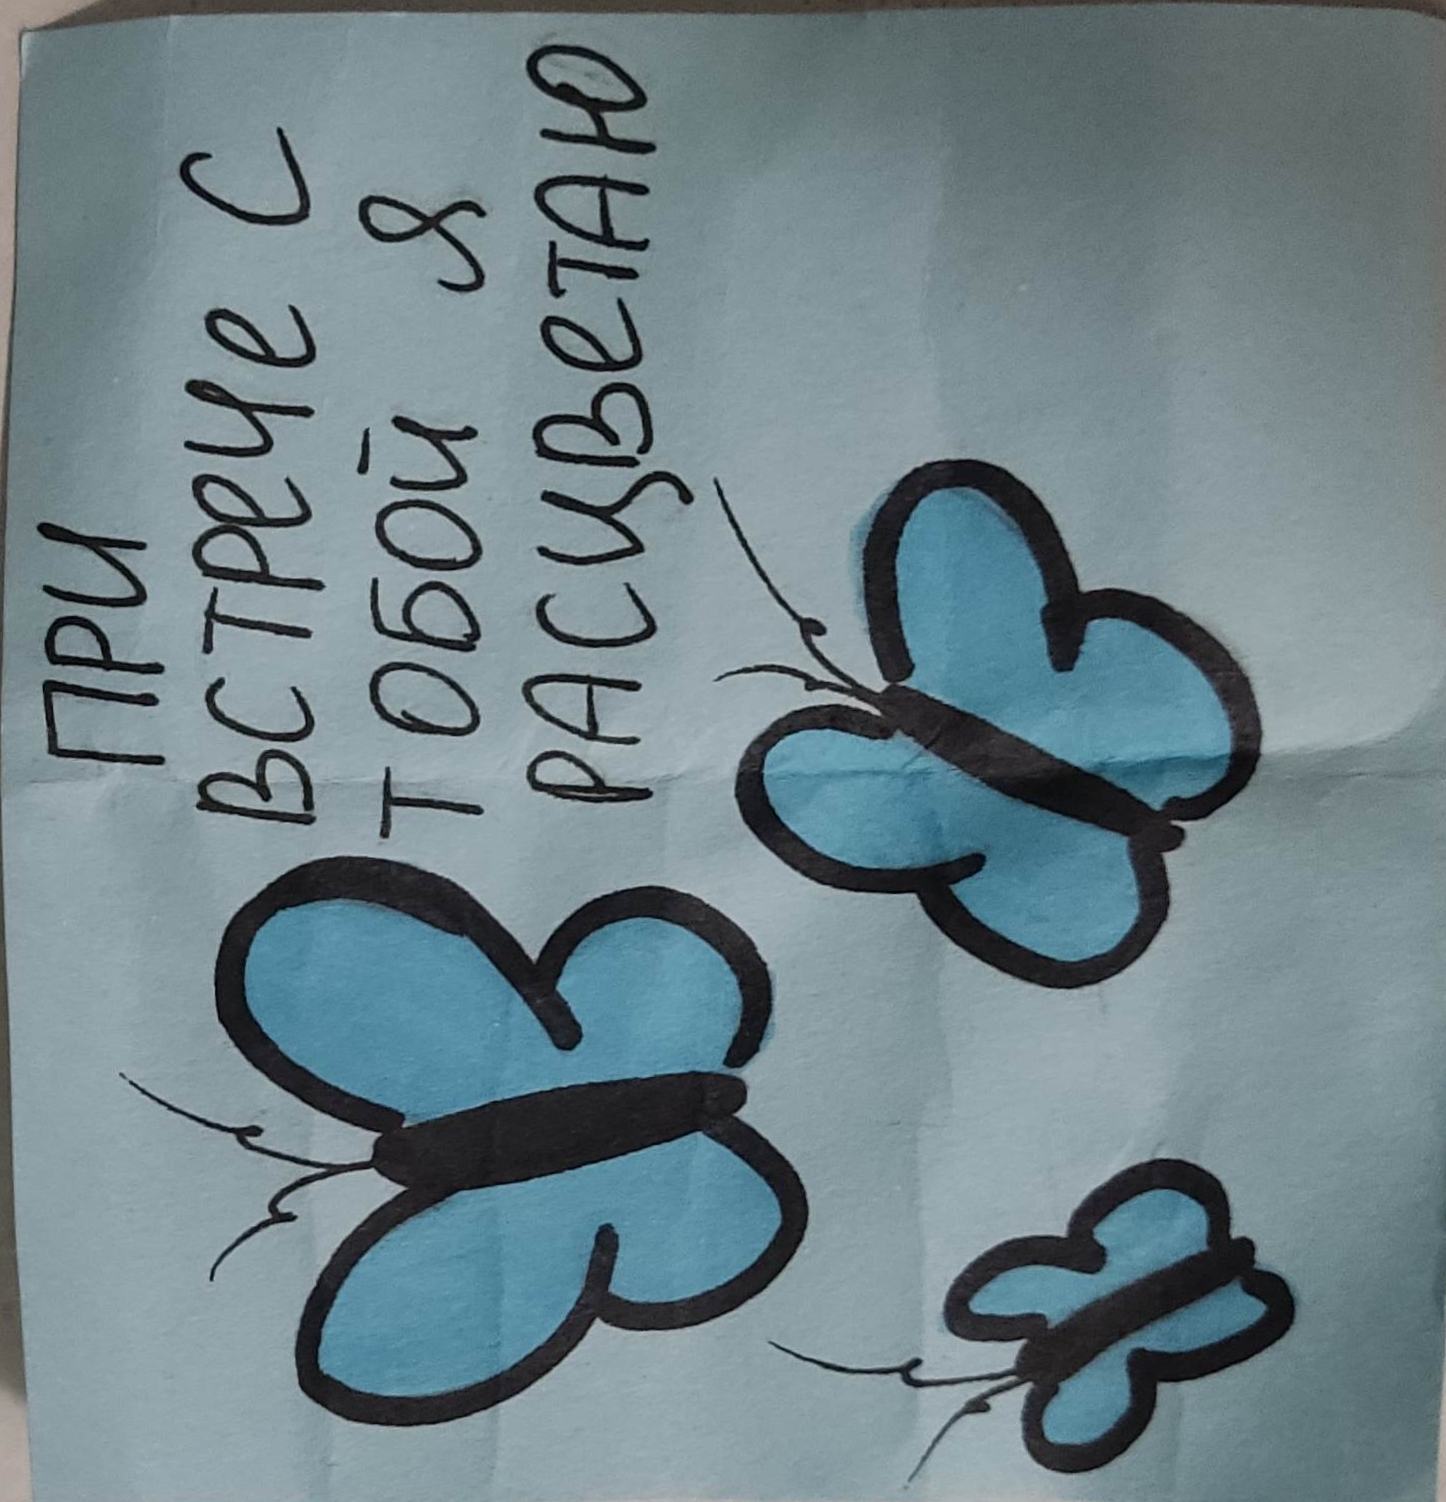 ПРИ
ВСТРЕЧЕ С
ТОБОЙ Я
РАСЦВЕТАЮ